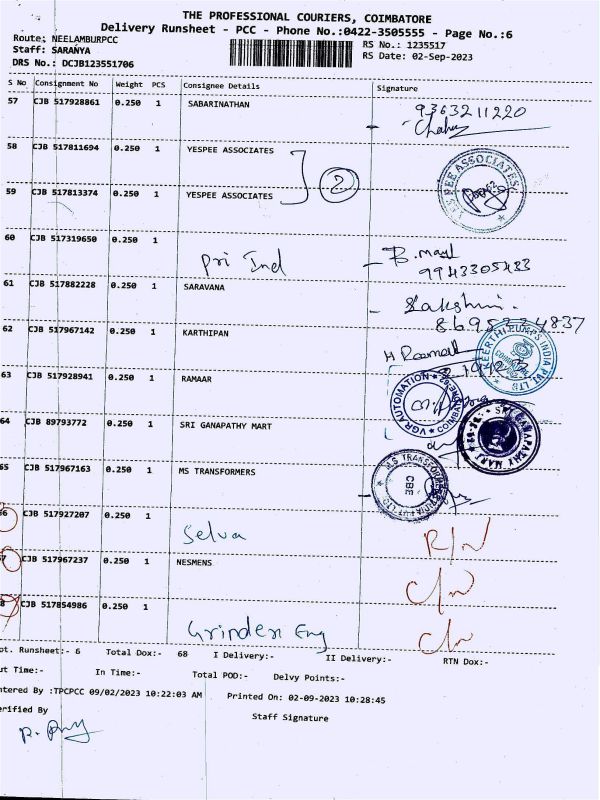 THE PROFESSIONAL COURIERS, COIMBATORE
Delivery Runsheet - PCC - Phone No.:0422-3505555 - Page No.:6
Route: NEELAMBURPCC
RS No.: 1235517
Staff: SARANYA
RS Date: 02-Sep-2023
DRS No.: DCJB123551706
S No Consignment No Weight PCS Consignee Details Signature
57 CJB 517928861 0.250 1 SABARINATHAN
9363211220
58 CJB 517811694 0.250 1 YESPEE ASSOCIATES
2
YES PEE ASSOCIATES
59 CJB 517813374 0.250 1 YESPEE ASSOCIATES
60 CJB 517319650 0.250 1
Pri Ind
B.
9943305433
61 CJB 517882228 0.250 1 SARAVANA
Lakshmi.
62 CJB 517967142 0.250 1 KARTHIPAN
PUMPS INDIA PVT LTD
63 CJB 517928941 0.250 1 RAMAAR
VGR AUTOMATION
64 CJB 89793772 0.250 1 SRI GANAPATHY MART
SRI GANAPATHY MART
65 CJB 517967163 0.250 1 MS TRANSFORMERS
M.S TRANSFORMERS
CBE
66 CJB 517927207 0.250 1
Selva
R/N
67 CJB 517967237 0.250 1 NESMENS
C/N
68 CJB 517854986 0.250 1
Grinder Eng
C/N
ot. Runsheet:- 6 Total Dox:- 68 I Delivery:- II Delivery:- RTN Dox:-
ut Time:- In Time:- Total POD:- Delvy Points:-
ntered By :TPCPCC 09/02/2023 10:22:03 AM Printed On: 02-09-2023 10:28:45
erified By
Staff Signature